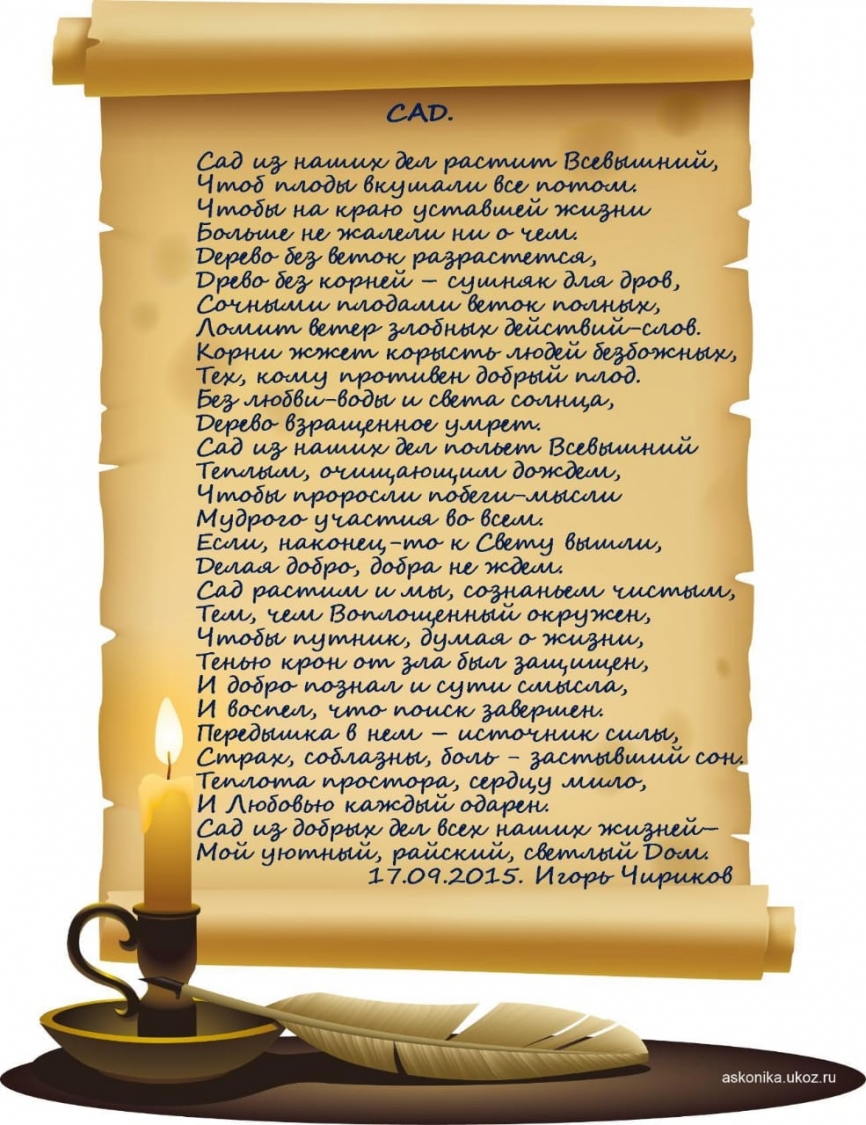 САД.
Сад из наших дел растит Всевышний,
Чтоб плоды вкушали все потом.
Чтобы на краю уставшей жизни
Больше не жалели ни о чем.
Дерево без веток разрастется,
Древо без корней – сушняк для дров,
Сочными плодами веток полных,
Ломит ветер злобных действий-слов.
Корни жжет корысть людей безбожных,
Тех, кому противен добрый плод.
Без любви-воды и света солнца,
Дерево взращенное умрет.
Сад из наших дел польет Всевышний
Теплым, очищающим дождем,
Чтобы проросли побеги-мысли
Мудрого участия во всем.
Если, наконец,-то к Свету вышли,
Делая добро, добра не ждем.
Сад растим и мы, сознаньем чистым,
Тем, чем Воплощенный окружен,
Чтобы путник, думая о жизни,
Тенью крон от зла был защищен,
И добро познал и сути смысла,
И воспел, что поиск завершен.
Передышка в нем – источник силы,
Страх, соблазны, боль - застывший сон.
Теплота простора, сердцу мило,
И Любовью каждый одарен.
Сад из добрых дел всех наших жизней–
Мой уютный, райский, светлый Дом.
17.09.2015. Игорь Чириков
askonika.ukoz.ru